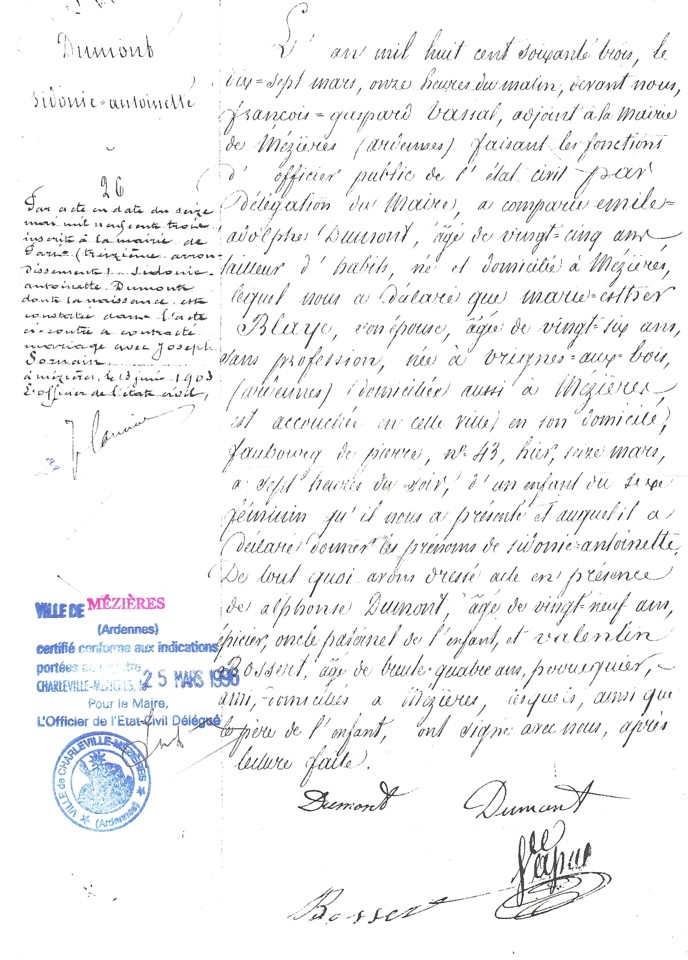 Dumont
sidonie-antoinette
26
Par acte en date du seize
mai mil neuf cent trois
inscrit à la mairie de
Paris (treizième arron-
dissement) Sidonie
antoinette Dumont
dont la naissance est
constatée dans l'acte
ci-contre a contracté
mariage avec Joseph
Sornain
à mézières, le 13 juin 1903
L'officier de l'état civil,
VILLE DE MÉZIÈRES
(Ardennes)
certifié conforme aux indications
portées au registre
CHARLEVILLE-MÉZIÈRES, 25 MARS 1998
Pour le Maire,
L'Officier de l'Etat-Civil Délégué
VILLE de CHARLEVILLE-MÉZIÈRES
(Ardennes)
L'an mil huit cent soixante trois, le
dix-sept mars, onze heures du matin, devant nous,
françois-gaspard Vassal, adjoint à la Mairie
de Mézières (ardennes) faisant les fonctions
d'officier public de l'état civil par
délégation du Maire, a comparu emile-
adolphe Dumont, âgé de vingt-cinq ans
tailleur d'habits, né et domicilié à Mézières,
lequel nous a déclaré que marie-esther
Blaye, son épouse, âgée de vingt-six ans,
sans profession, née à vrignes-aux-bois,
(ardennes) domiciliée aussi à Mézières
est accouchée en cette ville, en son domicile,
faubourg de pierre, n° 43, hier, seize mars,
a sept heures du soir, d'un enfant du sexe
féminin qu'il nous a présenté et auquel il a
déclaré donner les prénoms de sidonie-antoinette.
De tout quoi avons dressé acte en présence
de alphonse Dumont, âgé de vingt-neuf ans,
épicier, oncle paternel de l'enfant, et valentin
Bossert, âgé de trente-quatre ans, perruquier,
ami, domiciliés à Mézières, lesquels, ainsi que
le père de l'enfant, ont signé avec nous, après
lecture faite.
Dumont Dumont
Bossert